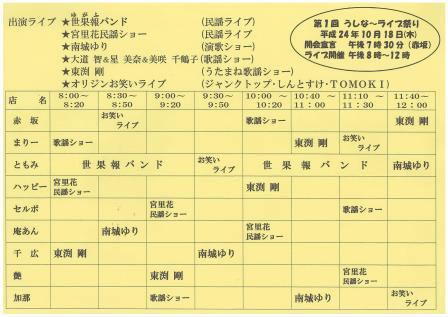 出演ライブ ★世果報バンド (民謡ライブ)
ゆがふ
★宮里花民謡ショー (民謡ライブ)
★南城ゆり (演歌ショー)
★大道 智&星 美奈&美咲 千鶴子(歌謡ショー)
★東渕 剛 (うたまね歌謡ショー)
★オリジンお笑いライブ (ジャンクトップ・しんとすけ・TOMOKI)
第1回 うしな~ライブ祭り
平成24年10月18日(木)
開会宣言 午後7時30分(赤坂)
ライブ開催 午後8時~12時
店名 8:00~8:20 8:30~8:50 9:00~9:20 9:30~9:50 10:00~10:20 10:40~11:00 11:10~11:30 11:40~12:00
赤坂 お笑いライブ 歌謡ショー 東渕 剛
まりー 歌謡ショー 東渕 剛 お笑いライブ
ともみ 世果報バンド お笑いライブ 世果報バンド 南城ゆり
ハッピー 宮里花民謡ショー 東渕 剛
セルポ 宮里花民謡ショー 歌謡ショー
庵あん 南城ゆり 宮里花民謡ショー
千広 東渕 剛 南城ゆり
艶 東渕 剛 宮里花民謡ショー
加那 歌謡ショー 南城ゆり お笑いライブ